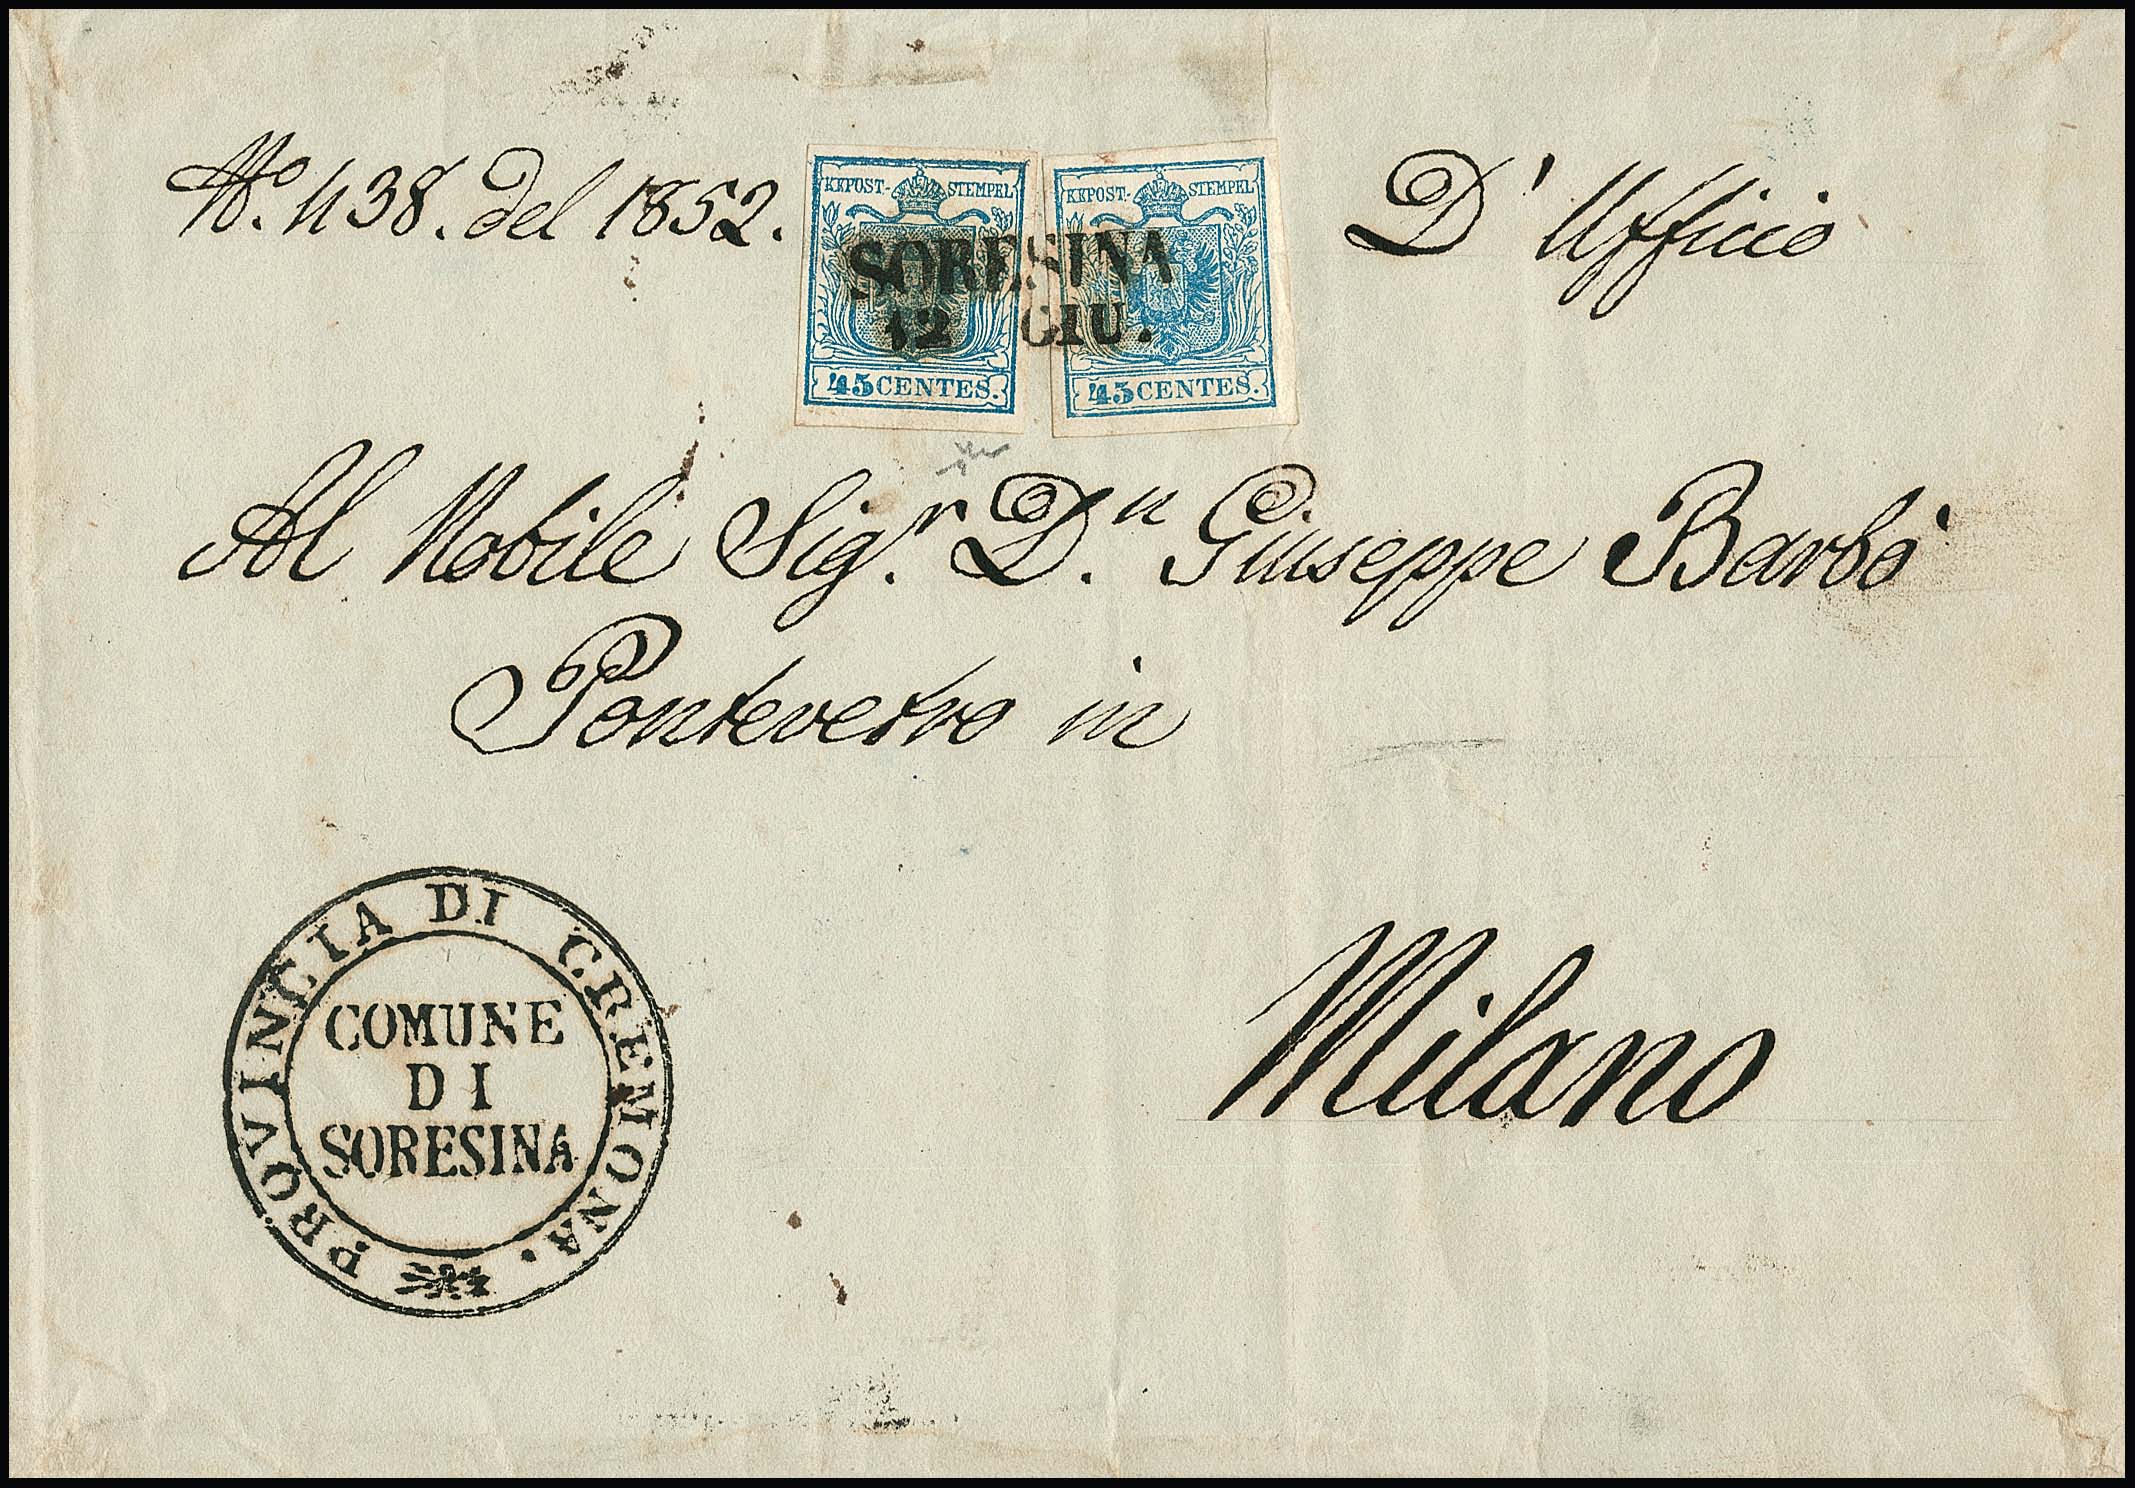 No. 438. del 1852.
KKPOST- STEMPEL
45 CENTES.
KKPOST- STEMPEL
45 CENTES.
SORESINA
12 GIU.
D'Ufficio
Al Nobile Sigr. Dn. Giuseppe Barbò
Pontevetro in
Milano
PROVINCIA DI CREMONA.
COMUNE
DI
SORESINA